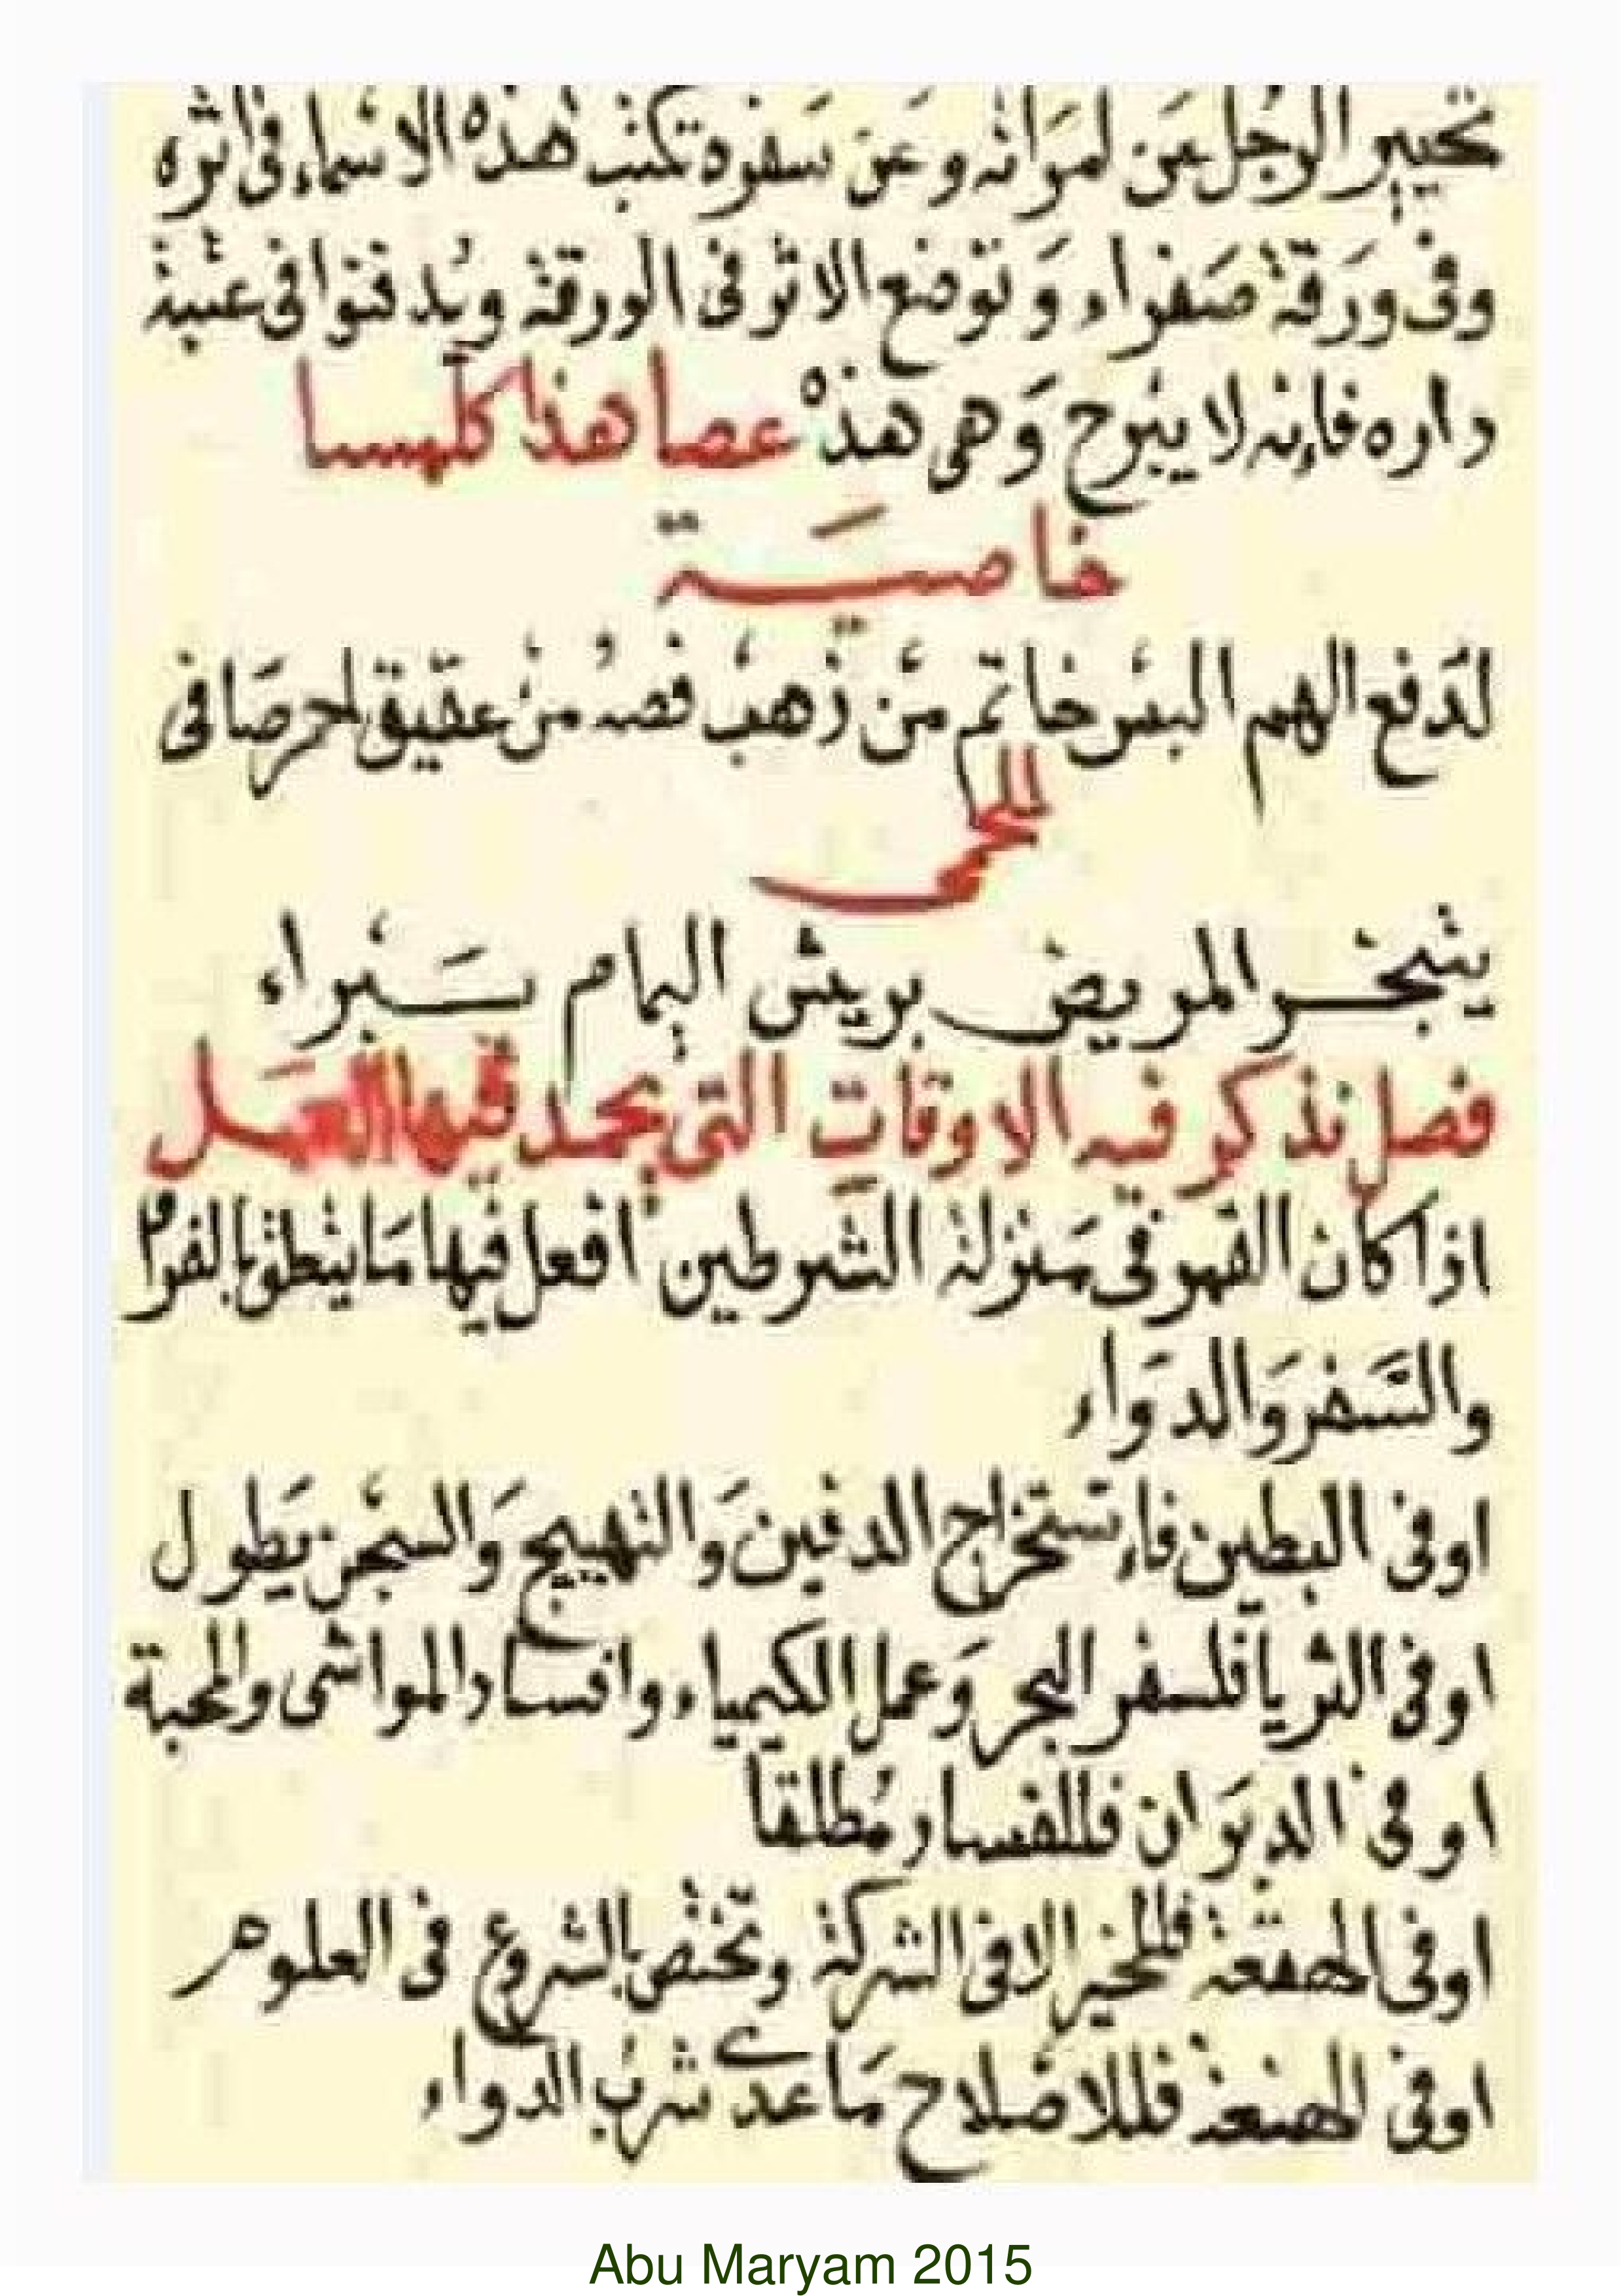 تحيير الرجل عن لمراته وعن سفره تكتب هذه الاسماء فى اثره
وفى ورقة صفراء وتوضع الاثر فى الورقة ويدفنوا فى عتبة
داره فانه لا يبرح وهى هذه عصا هذا كلهسسا
خاصية
لدفع الهم البس خاتم من ذهب فصه من عقيق احمر صافى
للحمى
يتبخر المريض بريش اليمام يبراء
فصل نذكر فيه الاوقات التى يحمد فيها العمل
اذا كان القمر فى منزلة الشرطين افعل فيها ما يتطق بالفرم
والسفر والدواء
اوفى البطين فاءستخراج الدفين والتهييج والسجن يطول
اوفى الثريا فلسفر البحر وعمل الكيمياء وافساد المواشى والمحبة
اوفى الدبران فللفساد مطلقا
اوفى الهقعة فللخير الا فى الشركة وتختص بالشروع فى العلوم
اوفى الهنعة فللاصلاح ما عدى شرب الدواء
Abu Maryam 2015